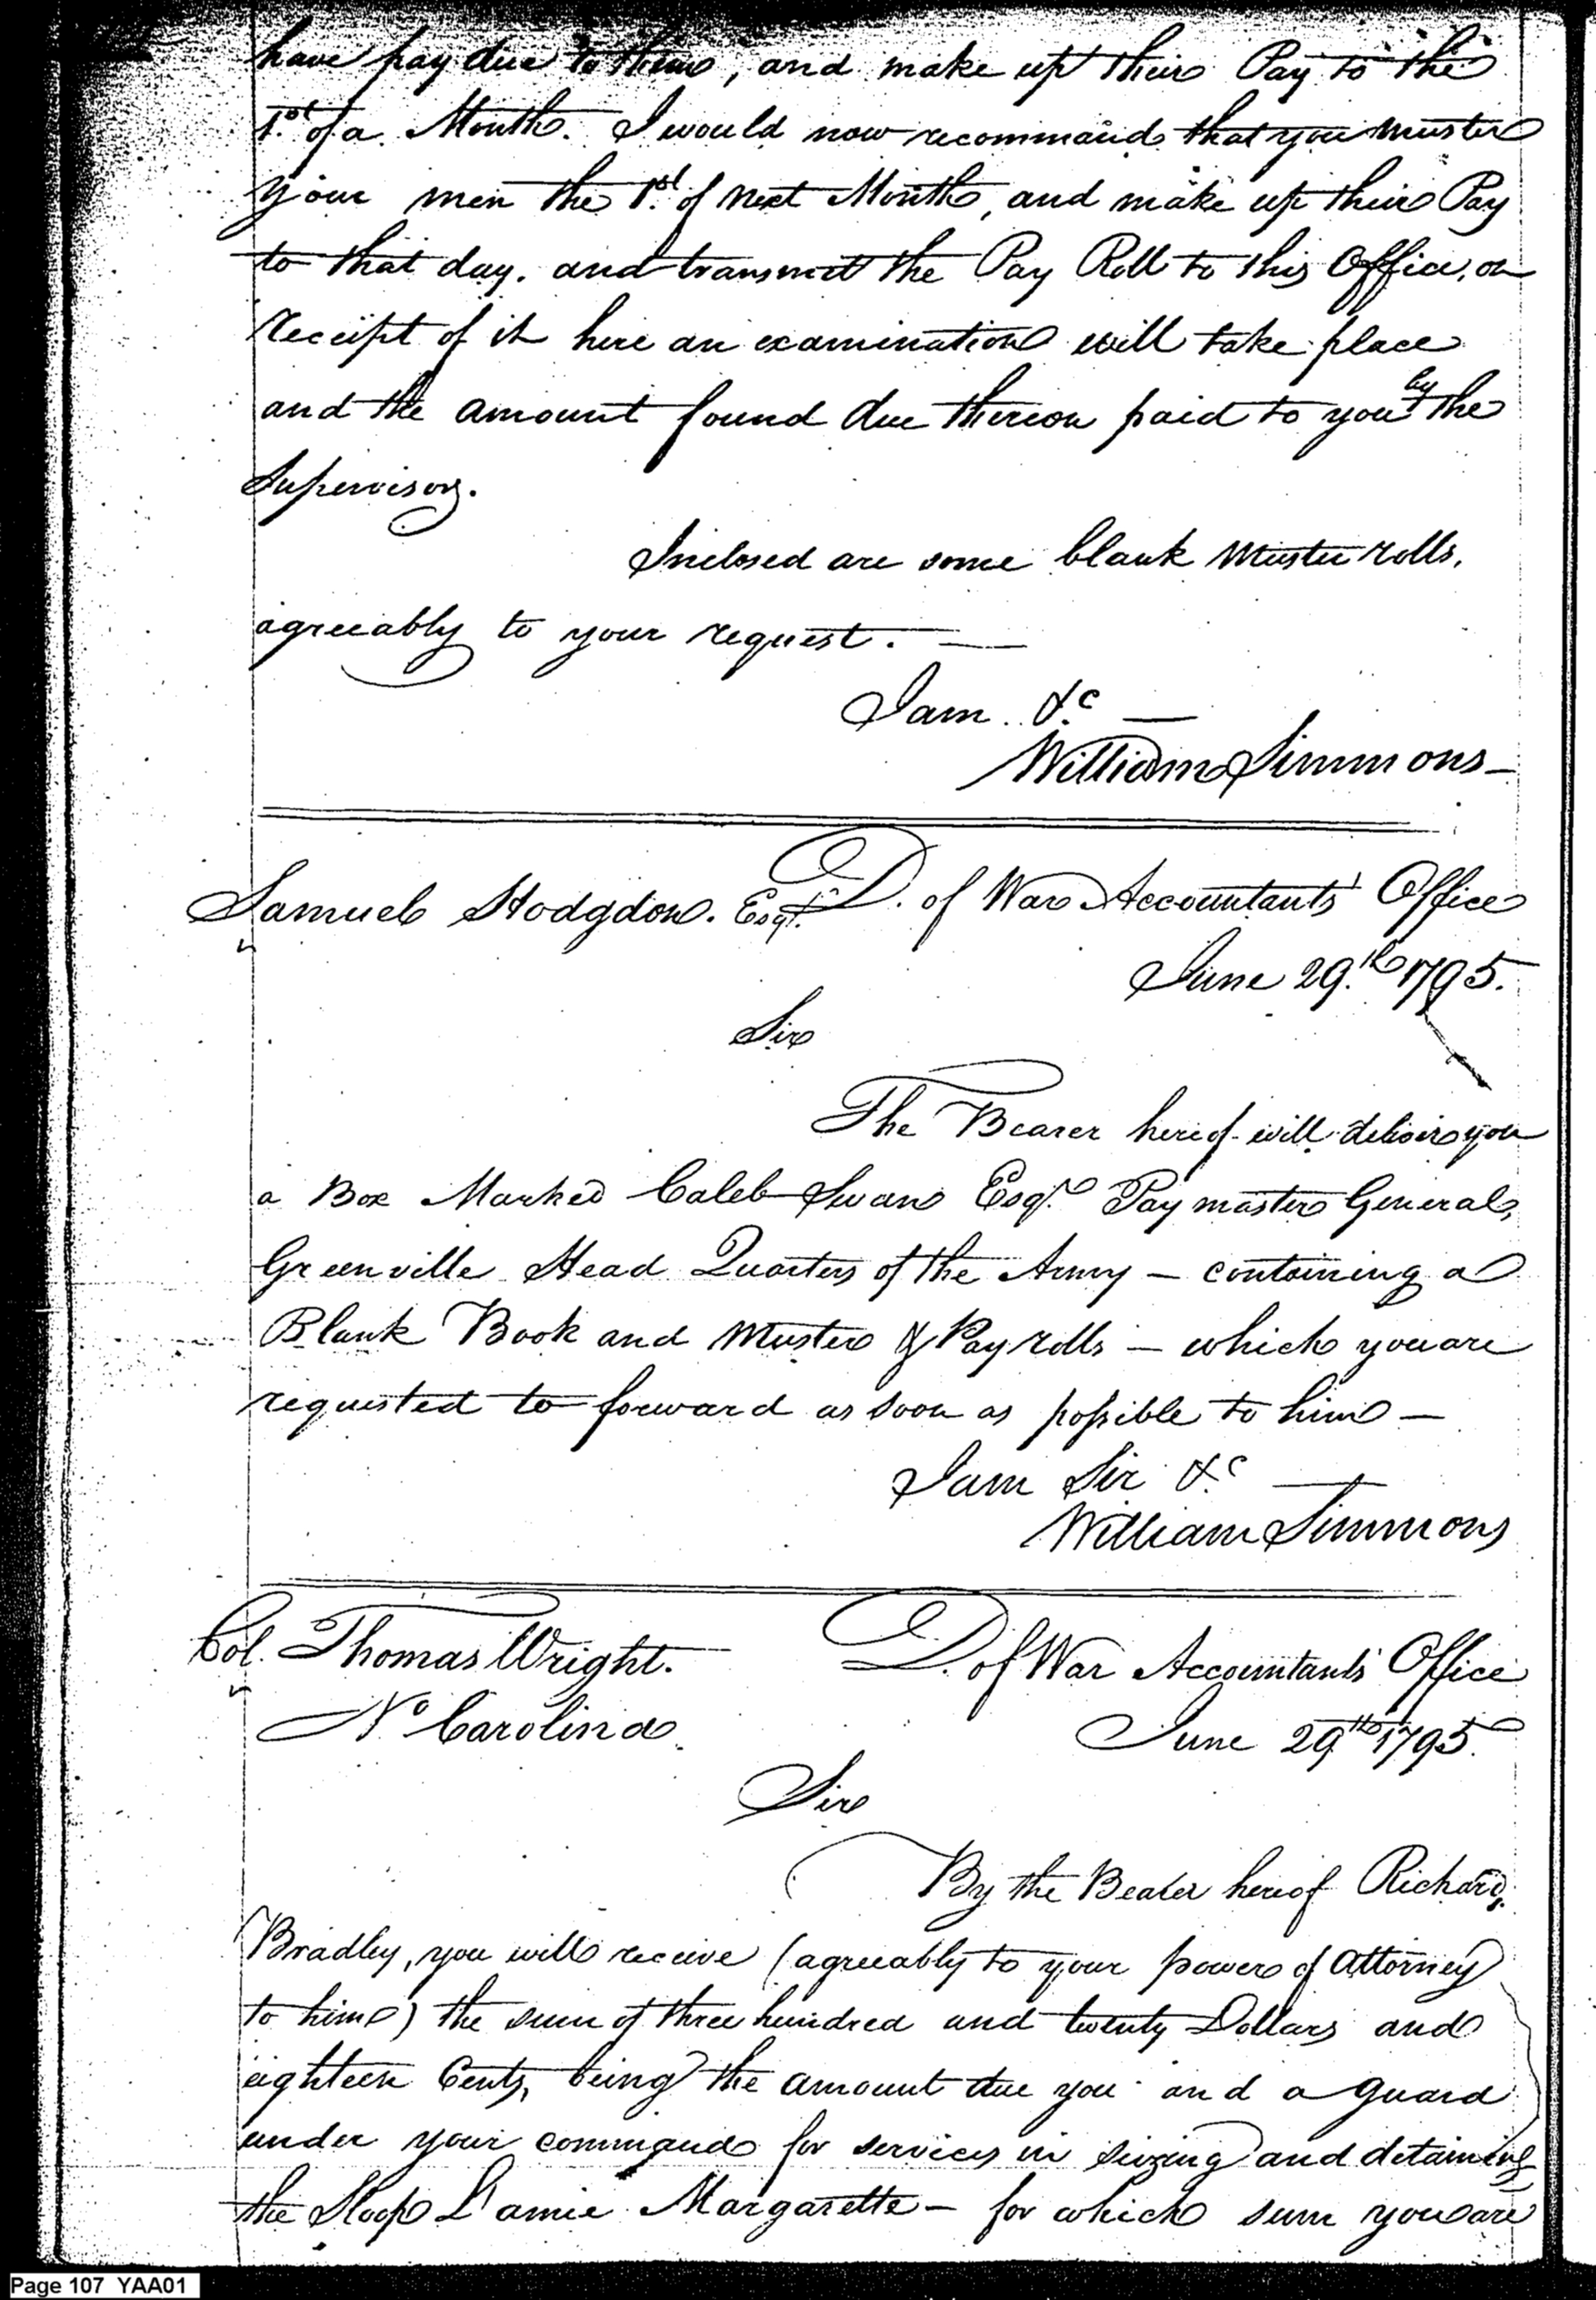 have pay due to them, and make up their Pay to the
1st of a Month. I would now recommend that you muster
your men the 1st of next Month, and make up their Pay
to that day. and transmit the Pay Roll to this Office, on
receipt of it here an examination will take place
and the amount found due thereon paid to you by the
Supervisor.
Inclosed are some blank Muster rolls,
agreeably to your request. —
I am &c —
William Simmons —
Samuel Hodgdon. Esqr. D. of War Accountants Office
June 29th 1795.
Sir
The Bearer hereof will deliver you
a Box Marked Caleb Swan Esqr. Pay master General,
Greenville Head Quarters of the Army — containing a
Blank Book and Muster & Pay rolls — which you are
requested to forward as soon as possible to him —
I am Sir &c —
William Simmons
Col. Thomas Wright. D. of War Accountants Office
No Carolina June 29th 1795.
Sir
By the Bearer hereof Richard
Bradley, you will receive (agreeably to your power of Attorney
to him) the sum of three hundred and twenty Dollars and
eighteen Cents, being the amount due you and a guard
under your command for services in seizing and detaining
the Sloop L'amie Margarette — for which sum you are
Page 107 YAA01